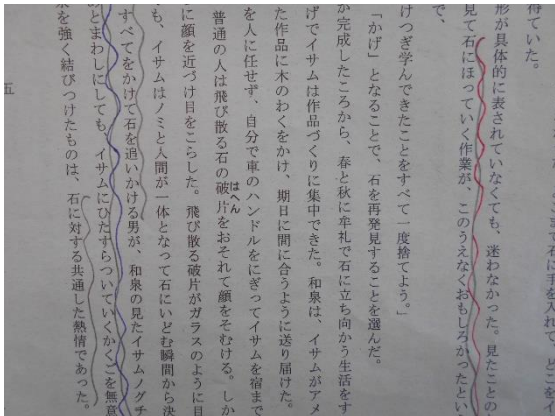 得ていた。
こまで石に手を入れて、どこをイ
形が具体的に表されていなくても、迷わなかった。見たことの
見て石にほっていく作業が、このうえなくおもしろかったとい
で、
けつぎ学んできたことをすべて一度捨てよう。」
「かげ」となることで、石を再発見することを選んだ。
が完成したころから、春と秋に牟礼で石に立ち向かう生活をす
げでイサムは作品づくりに集中できた。和泉は、イサムがアメ
た作品に木のわくをかけ、期日に間に合うように送り届けた。
を人に任せず、自分で車のハンドルをにぎってイサムを宿まで
普通の人は飛び散る石の破片をおそれて顔をそむける。しか
はへん
に顔を近づけ目をこらした。飛び散る破片がガラスのように目
も、イサムはノミと人間が一体となって石にいどむ瞬間から決
すべてをかけて石を追いかける男が、和泉の見たイサムノグチ
あとまわしにしても、イサムにひたすらついていくかくごを無意
泉を強く結びつけたものは、石に対する共通した熱情であった。
五